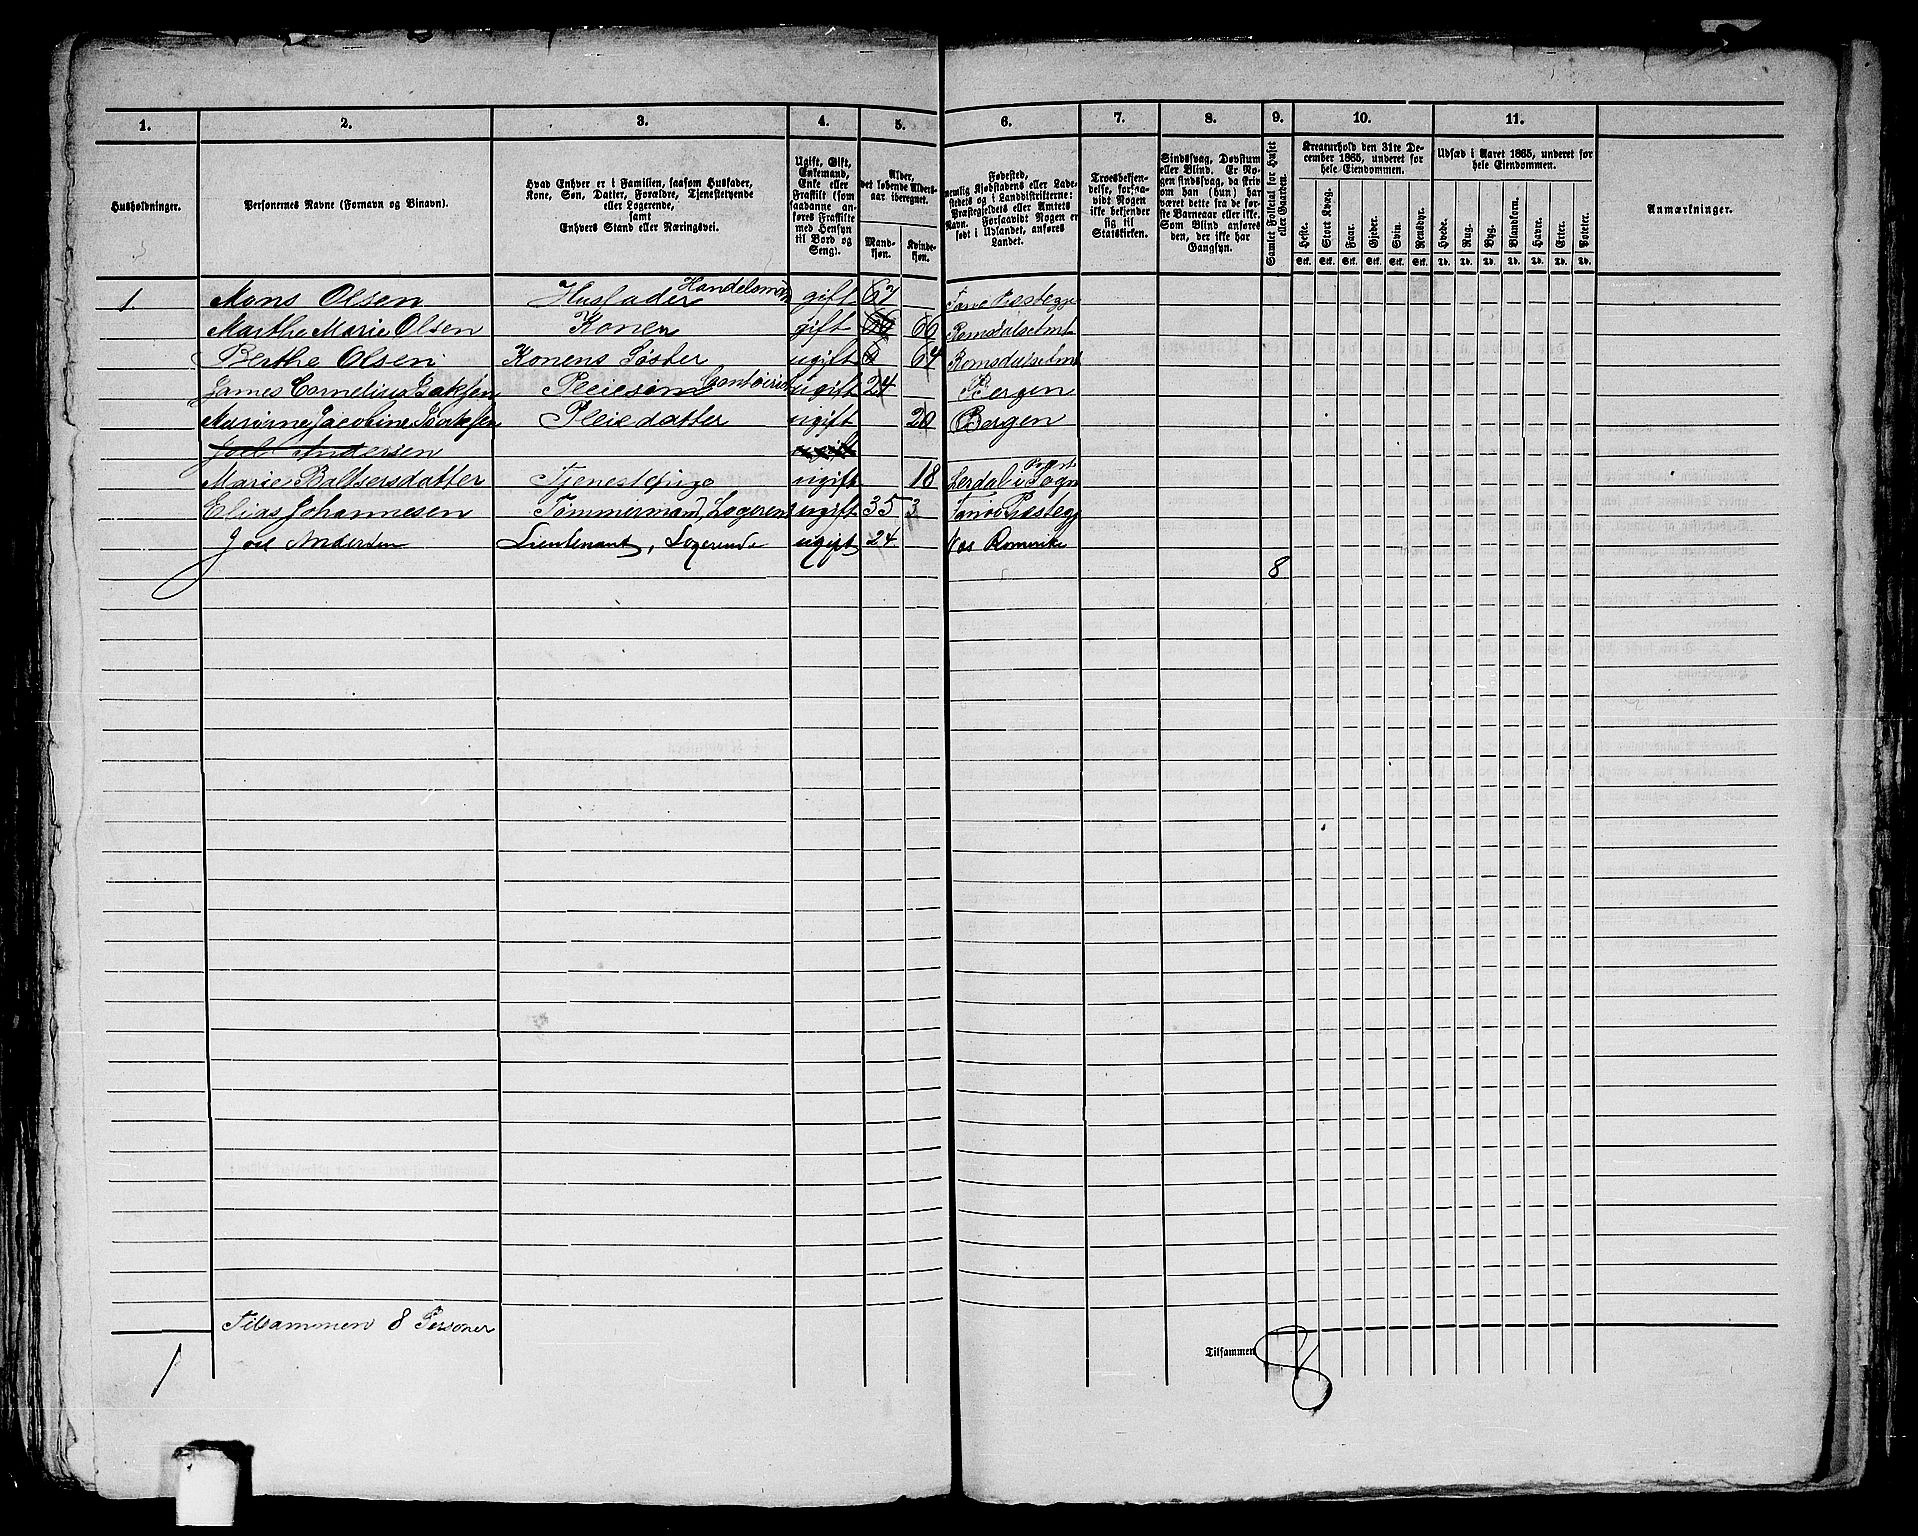 1. 2. 3. 4. 5. 6. 7. 8. 9. 10. 11.
Husholdninger.
Personernes Navne (Fornavn og Binavn).
Hvad Enhver er i Familien, saasom Husfader,
Kone, Søn, Datter, Forældre, Tjenestetyende
eller Logerende,
samt
Enhvers Stand eller Næringsvei.
Ugift, Gift,
Enkemand,
Enke eller
Fraskilt (som
saadanne an-
føres Fraskilte
med Hensyn
til Bord og
Seng).
Alder,
det løbende Alders-
aar iberegnet.
Mand-
kjøn.
Kvinde-
kjøn.
Fødested,
nemlig Kjøbstadens eller Lade-
stedets og i Landdistrikterne:
Præstegjeldets eller Amtets
Navn. Forsaavidt Nogen er
født i Udlandet, anføres
Landet.
Troesbekjen-
delse, forsaa-
vidt Nogen
ikke bekjender
sig til
Statskirken.
Sindssvag, Døvstum
eller Blind. Er No-
gen sindssvag, da skriv
om han (hun) har
været dette fra de før-
ste Barneaar eller ikke.
Som Blind anføres
den, der ikke har
Gangsyn.
Samlet Folketal for Huset
eller Gaarden.
Kreaturhold den 31te De-
cember 1865, underet for
hele Eiendommen.
Heste. Stort Kvæg. Faar. Gjeder. Svin. Rensdyr.
Stk. Stk. Stk. Stk. Stk. Stk.
Udsæd i Aaret 1865, underet for
hele Eiendommen.
Hvede. Rug. Byg. Blandkorn. Havre. Erter. Poteter.
Td. Td. Td. Td. Td. Td. Td.
Anmærkninger.
1. Mons Olsen Husfader Handelsmand gift 67
Marthe Marie Olsen Konen gift 66 Romsdals Amt
Berthe Olsen Konens Søster ugift 64 Romsdals Amt
James Cornelius Pleiesøn Contoirist ugift 24 Bergen
Jacobine Pleiedatter ugift 20 Bergen
Joel Andersen ugift
Marie Baltsersdatter Tjenestepige ugift 18 Lerdal i Sogn
Elias Johannesen Tømmermand, Logerende ugift 35
Joel Andersen Lieutenant, Logerende ugift 24 Romerike
8
Tilsammen 8 Personer
Tilsammen 8
1